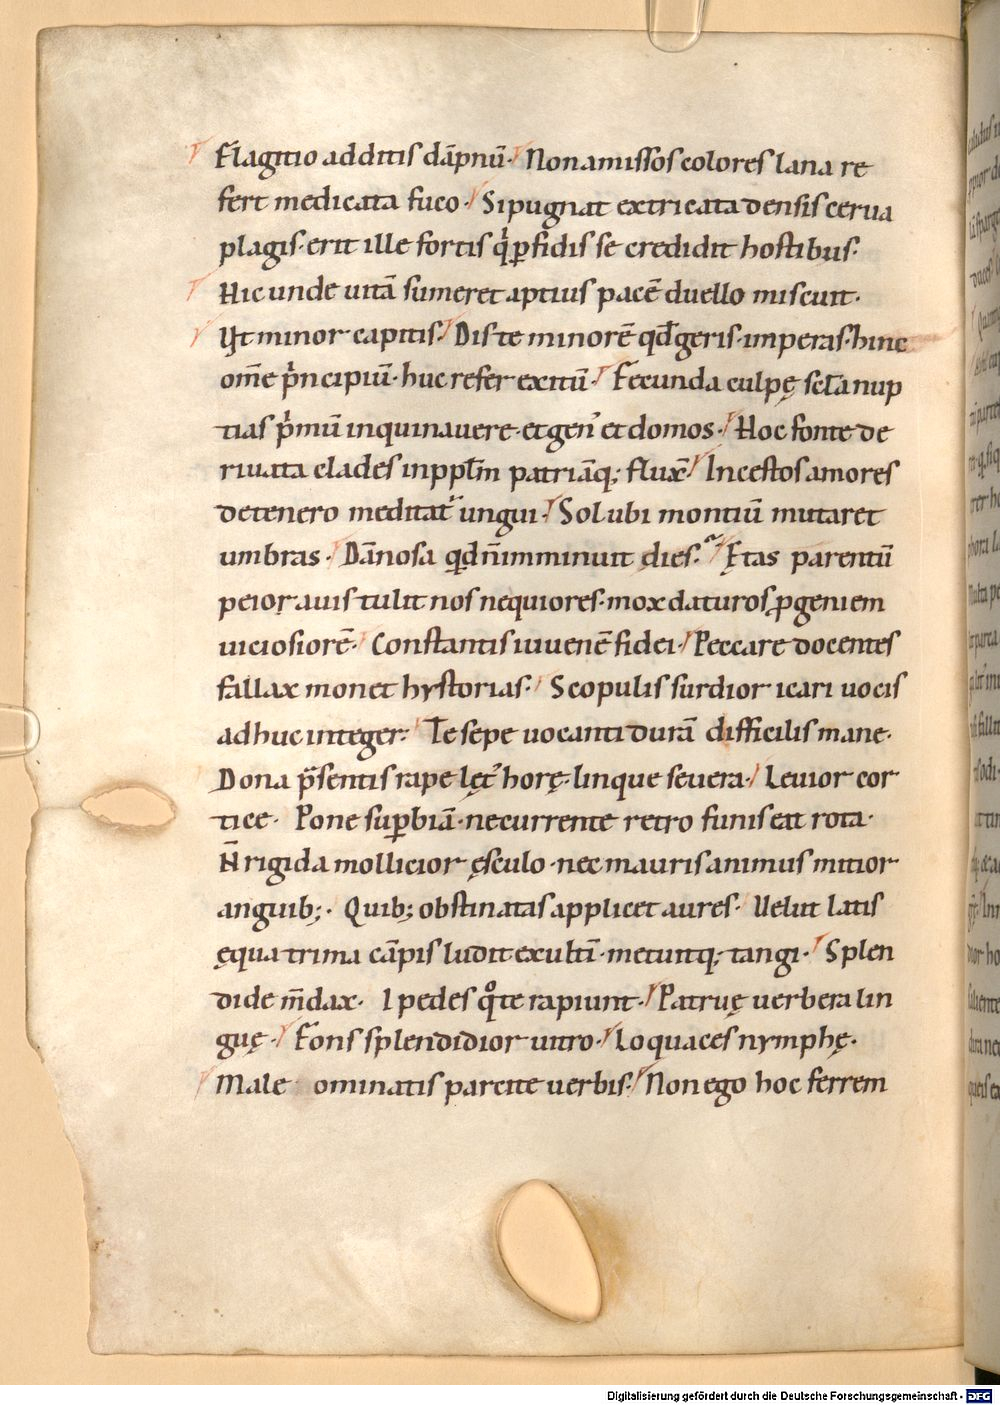 Flagitio additis dāpnū· Non amissos colores lana re
fert medicata fuco· Si pugnat extricata densis cerua
plagis· erit ille fortis q̇ ꝑfidis se credidit hostibus·
Hic unde uitā sumeret aptius pacē duello miscuit·
Ut minor capitis· Dis te minorē qd̄ geris· imperas· hinc
om̄e pͥncipiū· huc refer exitū· Fecunda culpę sc̄la nup
tias pͥmū inquinauere· et genꝰ et domos· Hoc fonte de
riuata clades inpptm̄ patriāq; fluxᷓ· Incestos amores
de tenero meditatᷣ ungui· Sol ubi montiū mutaret
umbras· Dānosa qd n̄ imminuit dies· Ętas parentū
peior auis tulit nos nequiores· mox daturos ꝓgeniem
uiciosiorē· Constantis iuuenē fidei· Peccare docentes
fallax monet hystorias· Scopulis surdior icari uocis
adhuc integer· Te sepe uocanti durā difficilis mane·
Dona p̄sentis rape lętꝰ horę· linque seuera· Leuior cor
tice· Pone suꝑbiā· ne currente retro funis eat rota·
N̄ rigida mollicior ęsculo· nec mauris animus mitior
anguib;· Quib; obstinatas applicet aures· Uelut latis
equa trima cāpis ludit exultī· metuitq; tangi· Splen
dide m̄dax· I pedes qͦ te rapiunt· Patruę uerbera lin
guę· Fons splendidior uitro· Loquaces nymphę·
Male ominatis parcite uerbis· Non ego hoc ferrem
Digitalisierung gefördert durch die Deutsche Forschungsgemeinschaft - DFG